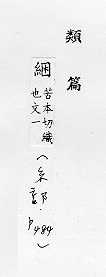 類篇
綑 苦本切織
也文一
(糸部·
p484)